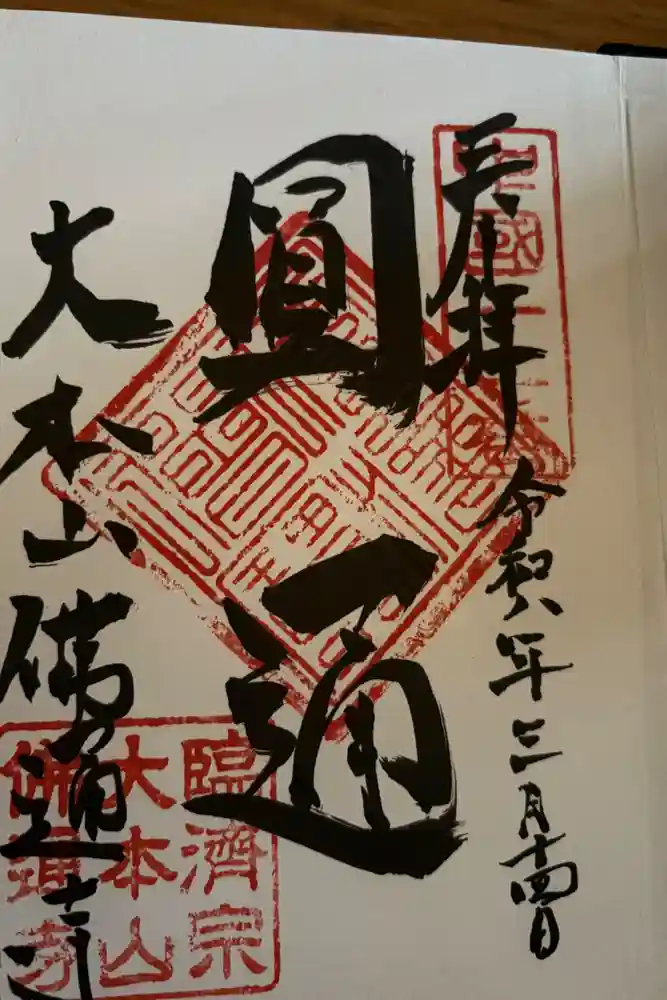 奉拝
令和八年三月十四日
中國
圓通
大本山佛通寺
臨濟宗
大本山
佛通寺